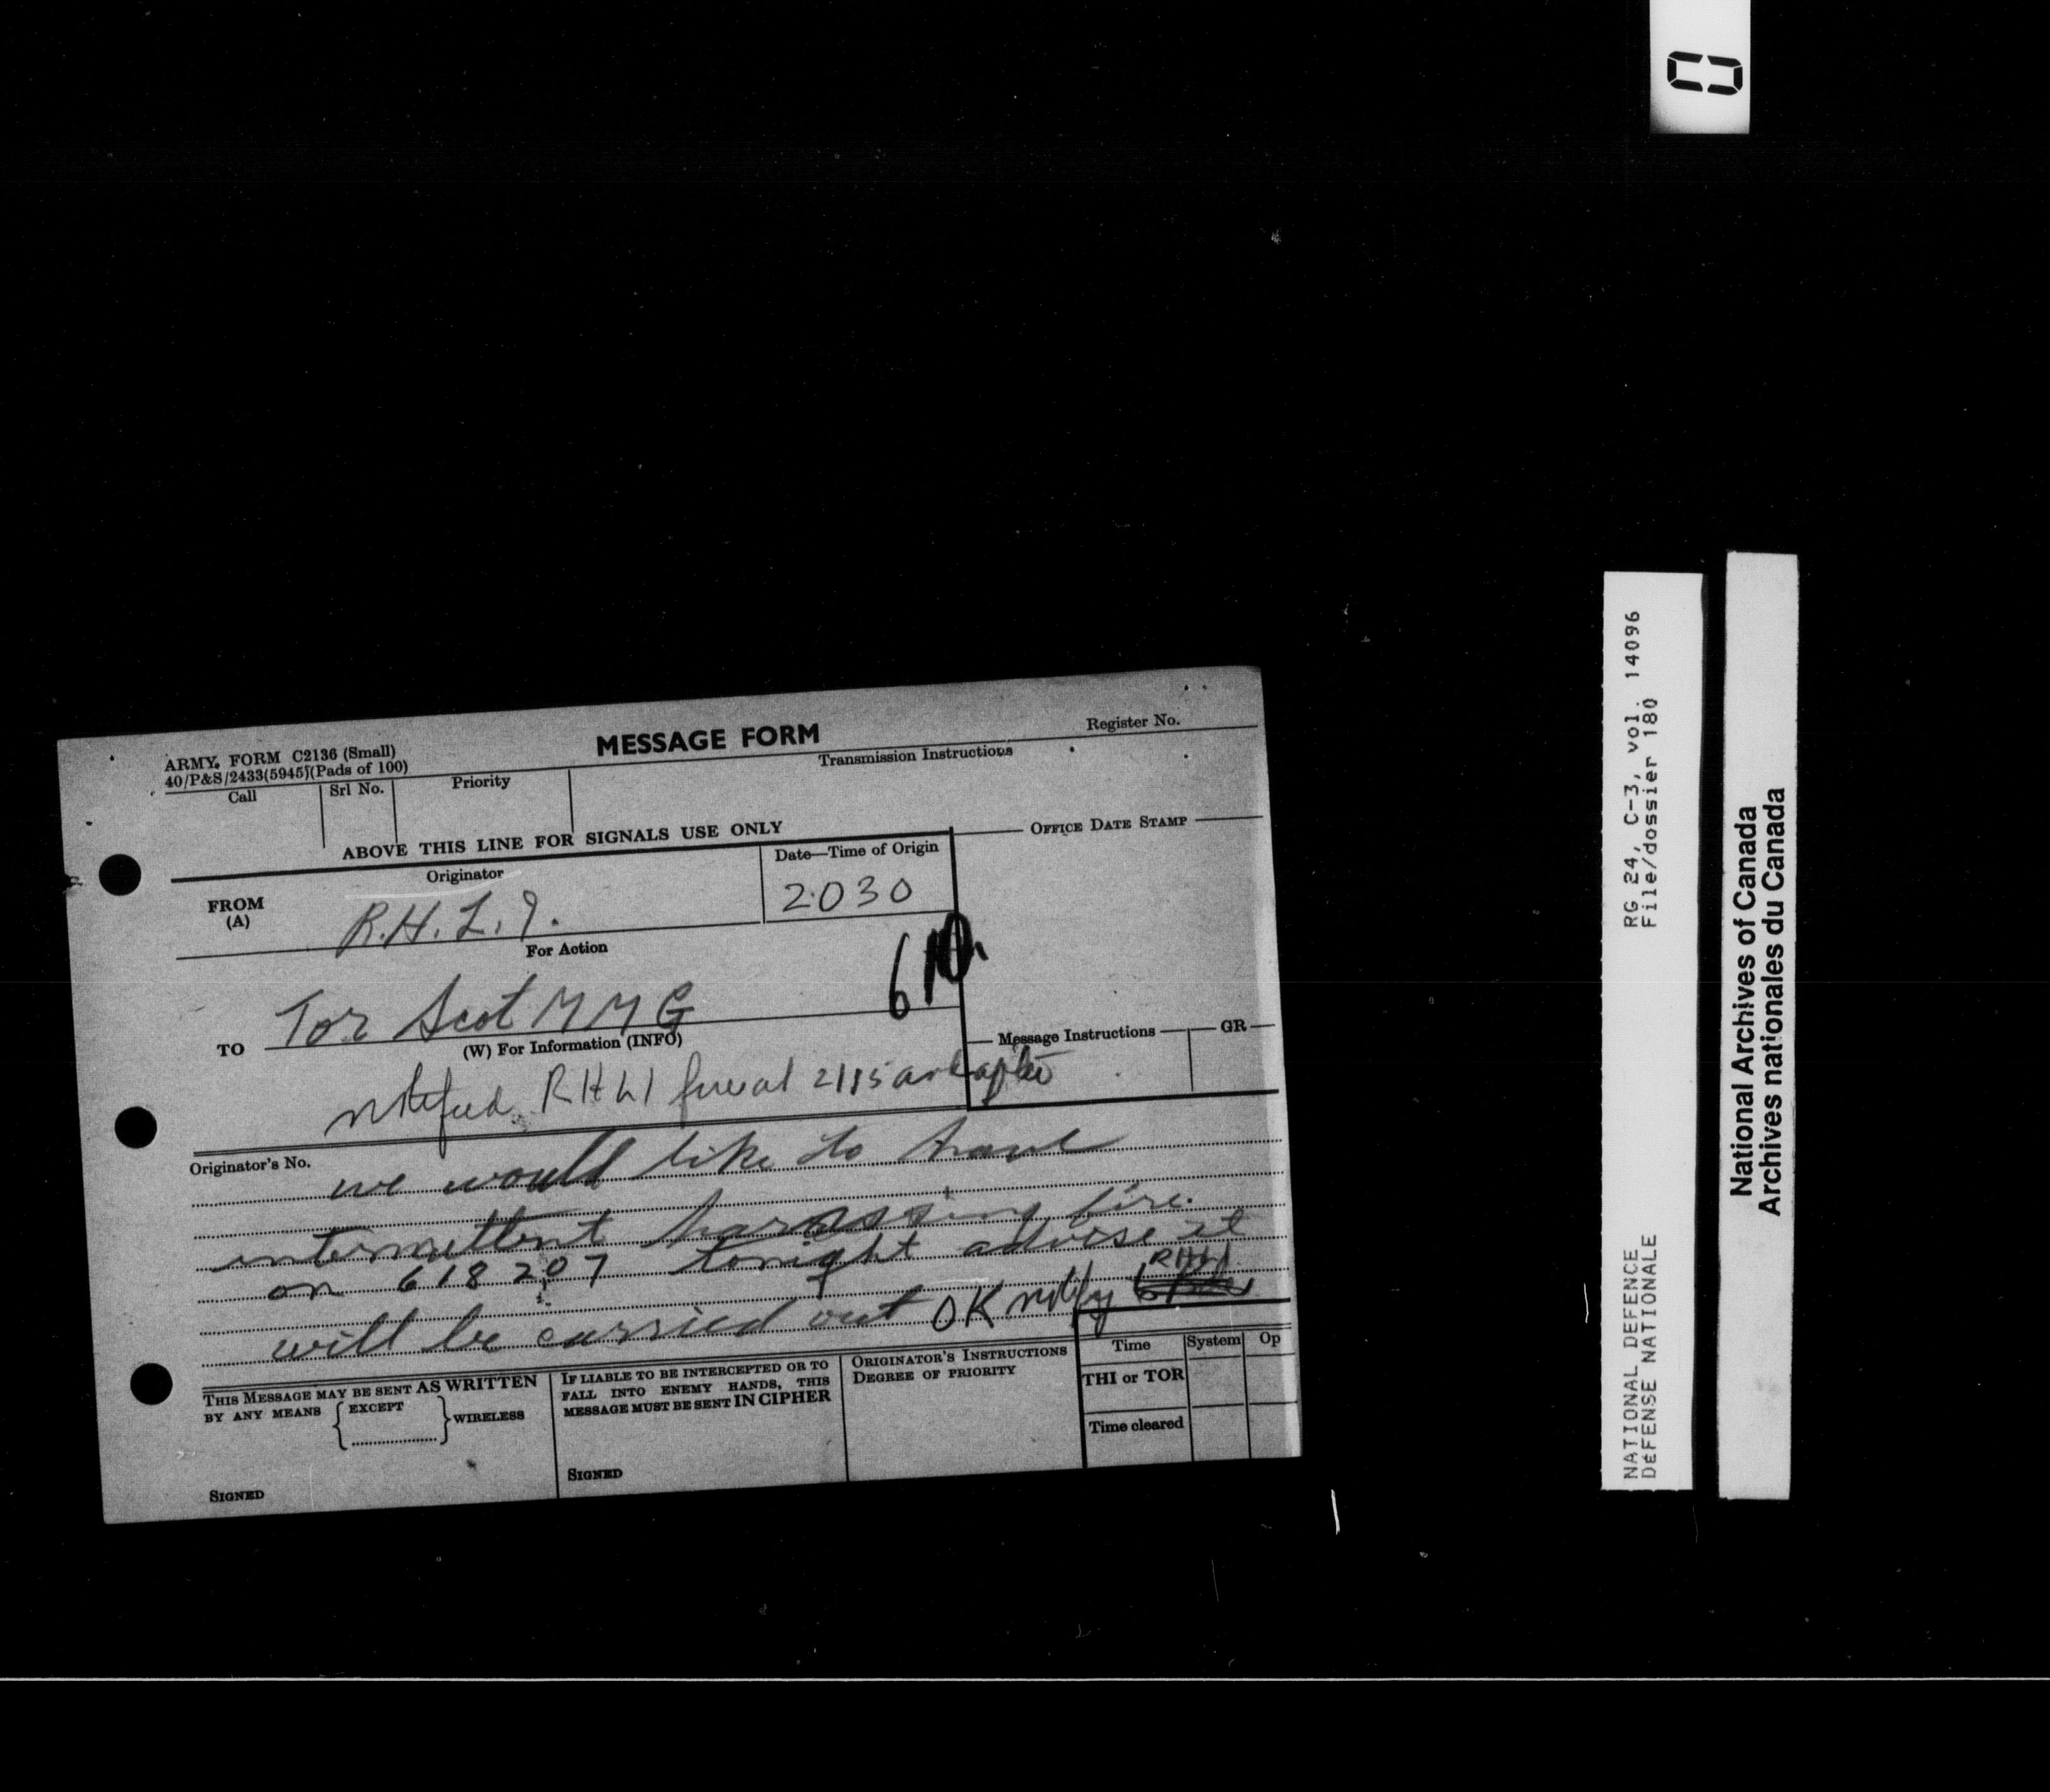 MESSAGE FORM
Register No.
ARMY FORM C2136 (Small)
40/P&S/2433(5945)(Pads of 100)
Transmission Instructions
Call Srl No. Priority
ABOVE THIS LINE FOR SIGNALS USE ONLY
OFFICE DATE STAMP
Originator
Date—Time of Origin
FROM
(A)
R.H.L.I.
2030
For Action
610
TO Tor Scot MMG
(W) For Information (INFO)
Message Instructions GR
notified RHLI fire at 2115 and after
Originator's No.
we would like to have
intermittent harassing fire
on 618207 tonight advise if
will be carried out OK notify RHLI
THIS MESSAGE MAY BE SENT AS WRITTEN
BY ANY MEANS { EXCEPT } WIRELESS
SIGNED
IF LIABLE TO BE INTERCEPTED OR TO
FALL INTO ENEMY HANDS, THIS
MESSAGE MUST BE SENT IN CIPHER
SIGNED
ORIGINATOR'S INSTRUCTIONS
DEGREE OF PRIORITY
Time System Op
THI or TOR
Time cleared
NATIONAL DEFENCE RG 24, C-3, vol. 14096
DÉFENSE NATIONALE File/dossier 180
National Archives of Canada
Archives nationales du Canada